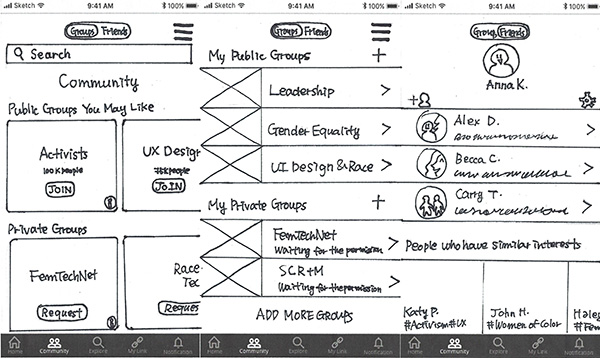 Sketch
9:41 AM
100%
Groups Friends
Search
Community
Public Groups You May Like
Activists
100K people
JOIN
UX Design
people
JOIN
Private Groups
FemTechNet
Request
Race
Tec
Reques
Home
Community
Explore
My Link
Notification
Sketch
9:41 AM
100%
Groups Friends
My Public Groups +
Leadership >
Gender Equality >
UI Design & Race >
My Private Groups +
FemTechNet
Waiting for the permission >
SCR+M
Waiting for the permission >
ADD MORE GROUPS
Home
Community
Explore
My Link
Notification
Sketch
9:41 AM
100%
Group Friends
Anna K.
+
Alex D.
Becca C.
Cary T.
People who have similar interests
Katy P.
#Activism #UX
John H.
#Women of Color
Hale
#Fem
Home
Community
Explore
My Link
Notification